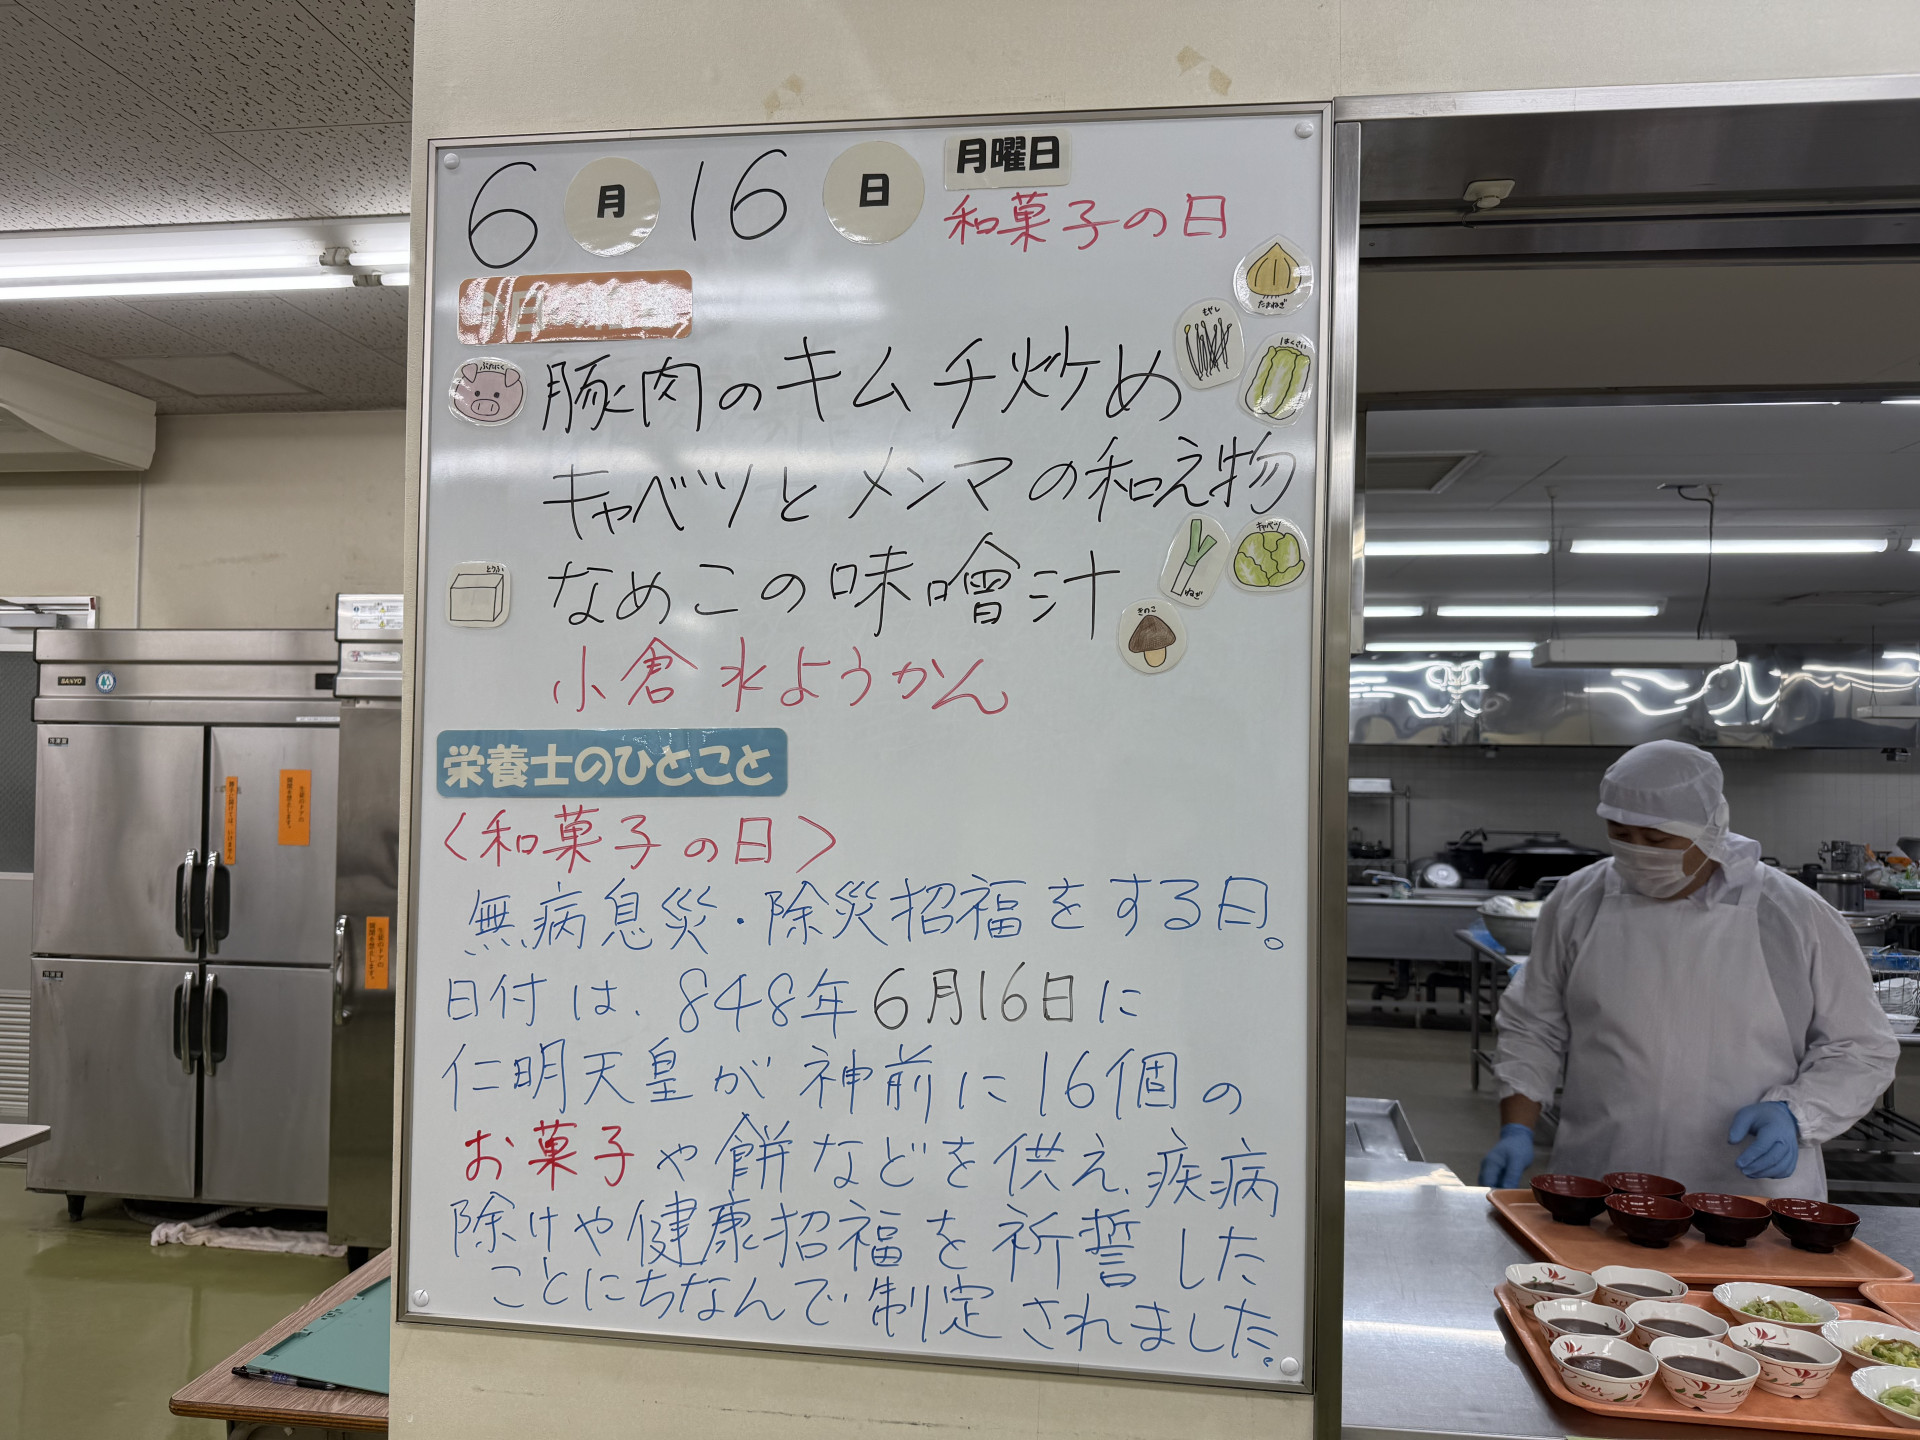 6月16日 月曜日
和菓子の日
たまねぎ
もやし
はくさい
ぶたにく
豚肉のキムチ炒め
キャベツとメンマの和え物
キャベツ
ねぎ
とうふ
なめこの味噌汁
きのこ
小倉水ようかん
栄養士のひとこと
〈和菓子の日〉
無病息災・除災招福をする日。
日付は、848年6月16日に
仁明天皇が神前に16個の
お菓子や餅などを供え、疾病
除けや健康招福を祈誓した
ことにちなんで制定されました。
SANYO